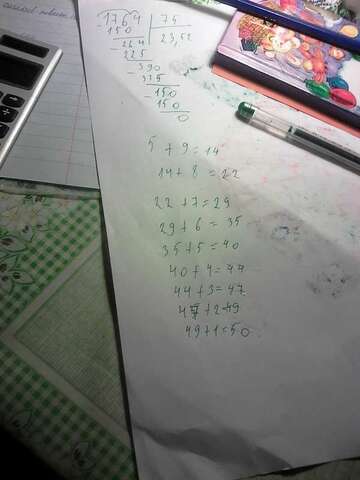 1764 | 75
150 | 23,52
- 264
225
- 390
375
- 150
150
0
5 + 9 = 14
14 + 8 = 22
22 + 7 = 29
29 + 6 = 35
35 + 5 = 40
40 + 4 = 44
44 + 3 = 47
47 + 2 = 49
49 + 1 = 50